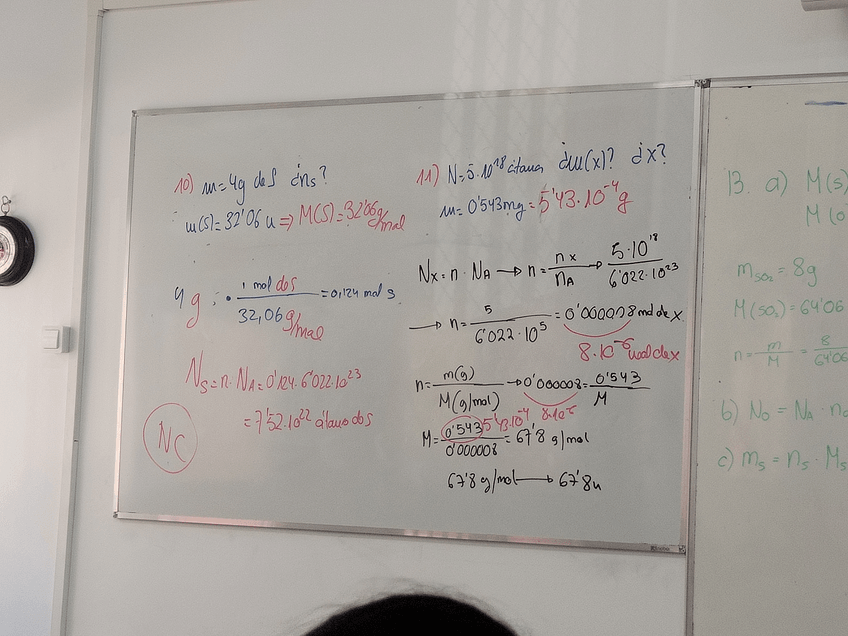 10) m=4g de S ¿ns?
m(S)=32'06 u ⇒ M(S)=32'06g/mol
4g · 1 mol de S / 32,06 g/mol = 0,124 mol S
Ns=n·NA=0'124·6'022·10²³
=7'52·10²² átomo de S
NC
11) N=5·10¹⁸ átomos ¿m(x)? ¿x?
m=0'543mg=5'43·10⁻⁴g
Nx=n·NA → n= nx / nA → 5·10¹⁸ / 6'022·10²³
→ n= 5 / 6'022·10⁵ =0'000008 mol de x
8·10⁻⁶ mol de x
n= m(g) / M(g/mol) → 0'000008= 0'543 / M
8·10⁻⁶
M= 0'543 5'43·10⁻⁴ / 0'000008 =67'8 g/mol
67'8 g/mol → 67'8u
13. a) M(S)
M(O
mSO₂=8g
M(SO₂)=64'06
n= m / M = 8 / 64'06
b) NO=NA·no
c) ms=ns·Ms